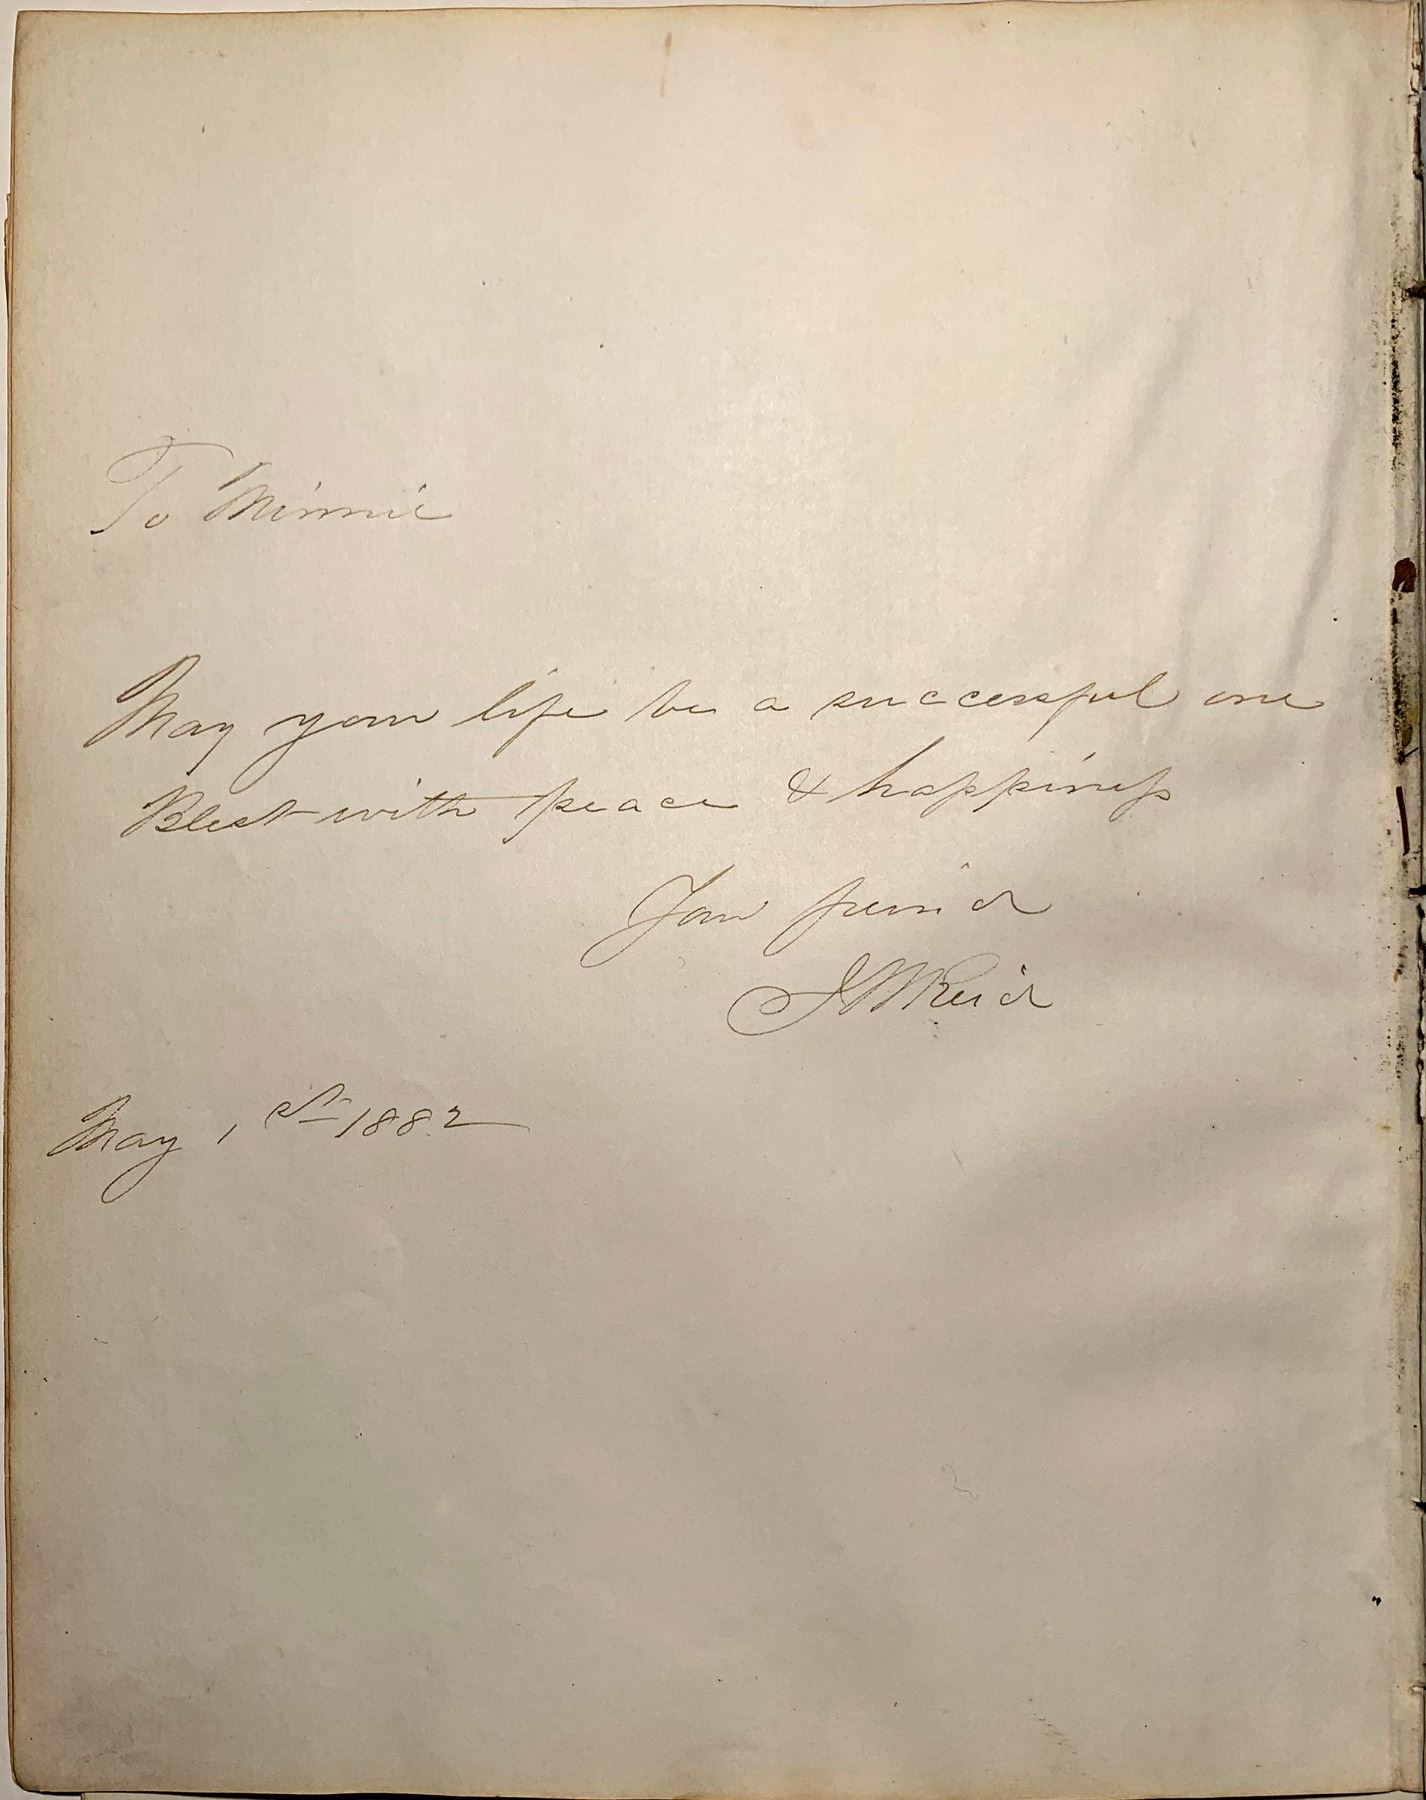 To Minnie
May your life be a successful one
Blest with peace & happiness
Your friend
J W Reid
May 1st 1882